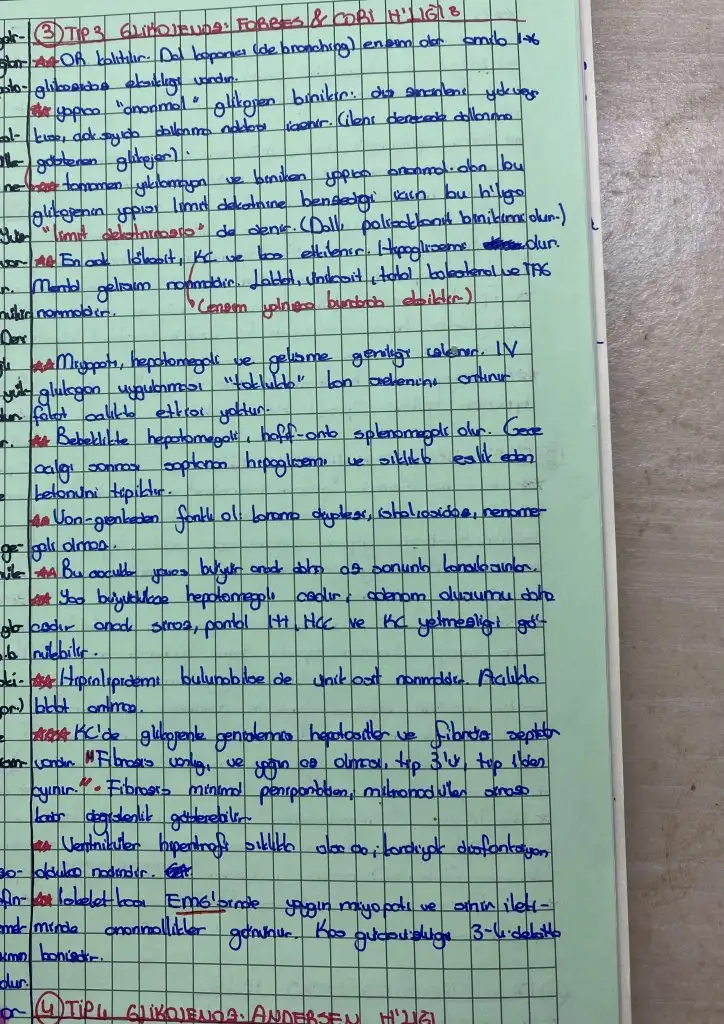 ③ TİP3 GLİKOJENOZ: FORBES & CORİ H'LIĞI:
OR kalıtılır. Dal koparıcı (debranching) enzim olan amilo 1-6
glikosidaz eksikliği vardır.
yapıca "anormal" glikojen birikir:
kısa, çok sayıda dallanma noktası içerir. (ileri derecede dallanma
gösteren glikojen).
tamamen yıkılamayan ve biriken yapıca anormal olan bu
glikojenin yapısı limit dekstrine benzediği için bu h'lığa
"limit dekstrinozis" de denir. (Dallı polisakkarit birikimi olur.)
En çok lökosit, KC ve kas etkilenir. Hipoglisemi olur.
Mental gelişim normaldir. Laktat, ürikasit, total kolesterol ve TAG
normaldir. (enzim yalnızca buralarda eksiktir)
Miyopati, hepatomegali ve gelişme geriliği izlenir. IV
glukagon uygulaması "toklukta" kan şekerini artırır
fakat açlıkta etkisi yoktur.
Bebeklikte hepatomegali, hafif-orta splenomegali olur. Gece
açlığı sonrası saptanan hipoglisemi ve sıklıkla eşlik eden
ketonüri tipiktir.
Von-gierkeden farklı ol: kanama diyatezi, ishal, nefrome-
gali olmaz.
Bu çocuklar yavaş büyür ancak daha az sorunla karşılaşırlar.
Yaş büyüdükçe hepatomegali azalır, adenom oluşumu daha
azdır ancak siroz, portal HT, HCC ve KC yetmezliği gö-
rülebilir.
Hiperlipidemi bulunabilse de ürik asit normaldir. Açlıkta
laktat artmaz.
KC'de glikojenle genişlemiş hepatositler ve fibröz septalar
vardır. "Fibrozis varlığı, ve yağın az olması, tip 3'ü, tip 1'den
ayırır." Fibrozis minimal periportalden, mikronodüler siroza
kadar değişkenlik gösterebilir.
Ventriküler hipertrofi sıklıkla olsa da, kardiyak disfonksiyon
oldukça nadirdir.
İskelet kası EMG'sinde yaygın miyopati ve sinir ileti-
minde anormallikler görünür. Kas güçsüzlüğü 3-4. dekatta
barizdir.
④ TİP4 GLİKOJENOZ: ANDERSEN H'LIĞI